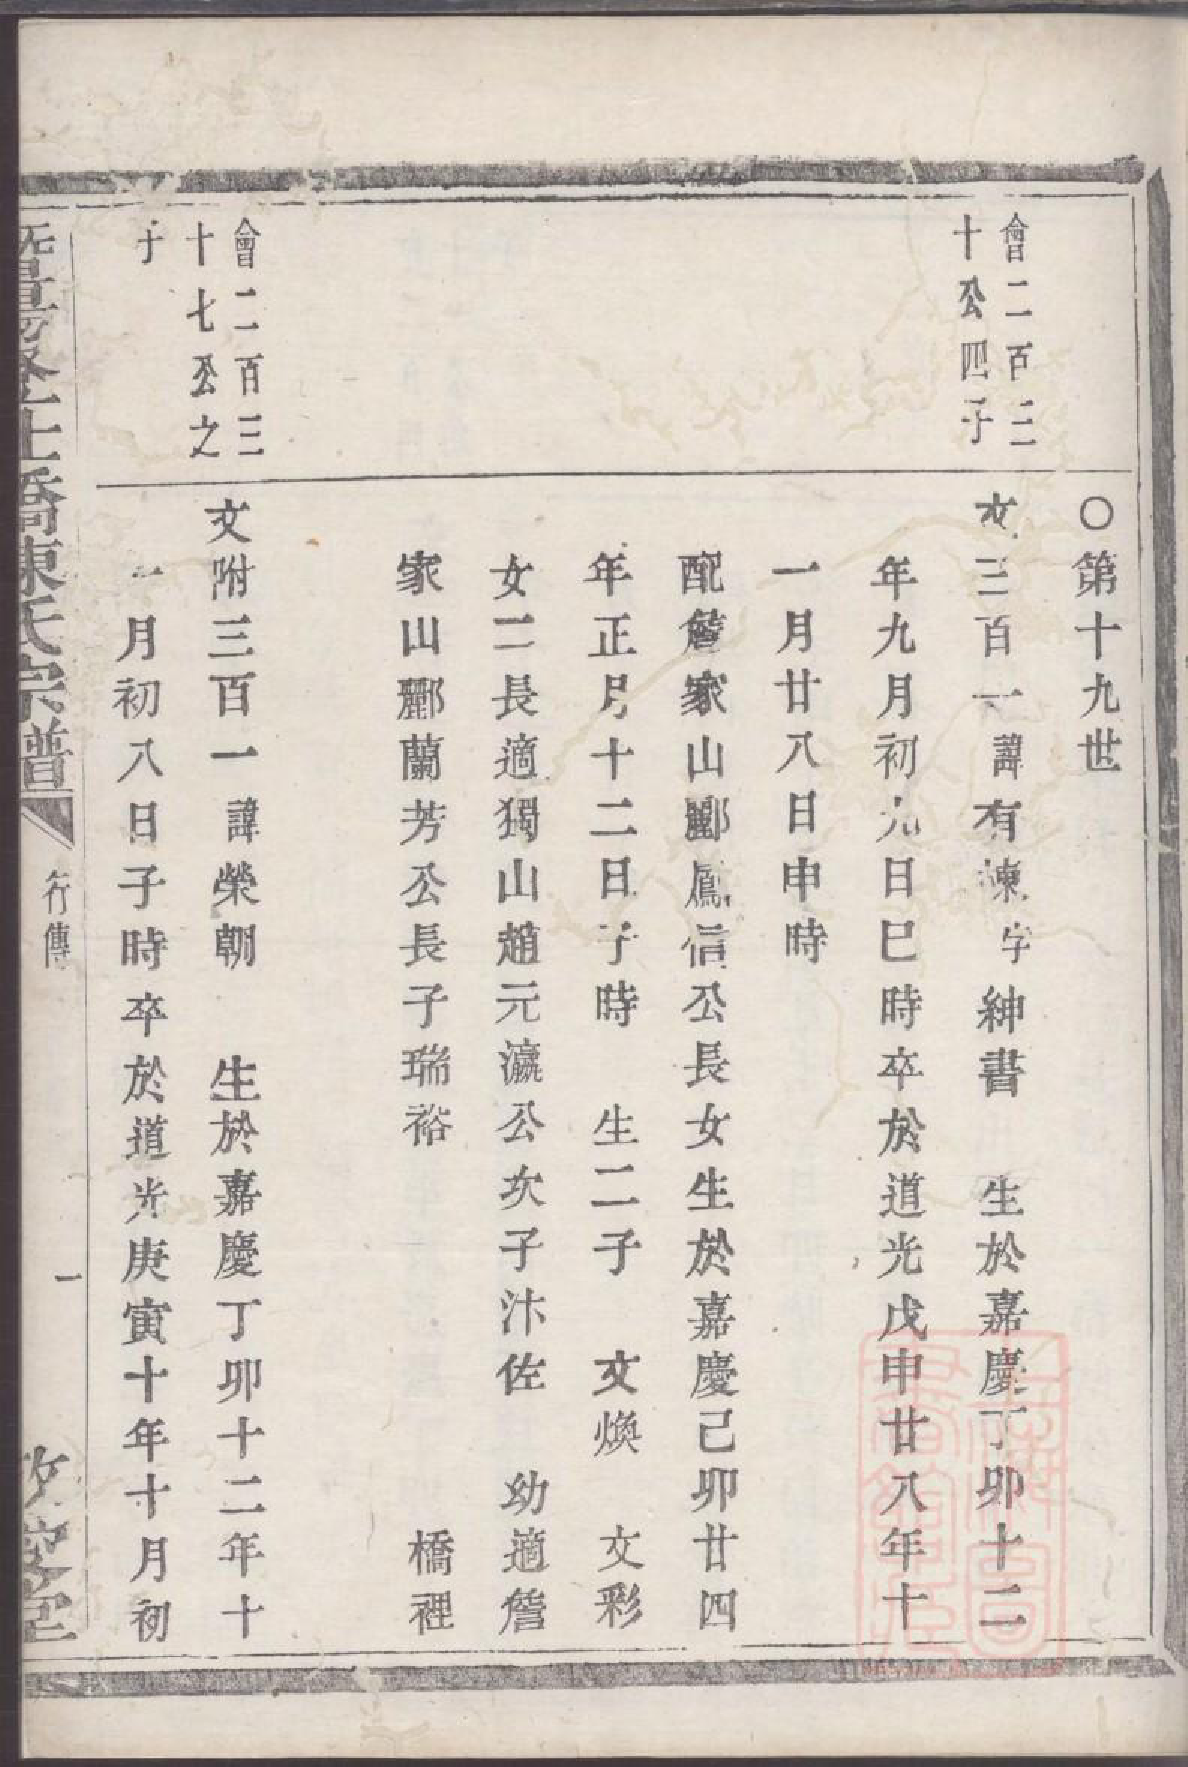 ○第十九世
會二百三
十公四子
文三百一諱有棟字紳書　生於嘉慶丁卯十二
年九月初九日巳時卒於道光戊申廿八年十
一月廿八日申時
配詹家山酈鳳信公長女生於嘉慶己卯廿四
年正月十二日子時　生二子　文煥　文彩
女二長適獨山趙元瀛公次子汴佐　幼適詹
家山酈蘭芳公長子瑞裕　橋裡
會二百三
十七公之
子
文附三百一諱榮朝　生於嘉慶丁卯十二年十
一月初八日子時卒於道光庚寅十年十月初
暨陽　上橋陳氏宗譜
行傳
一
堂